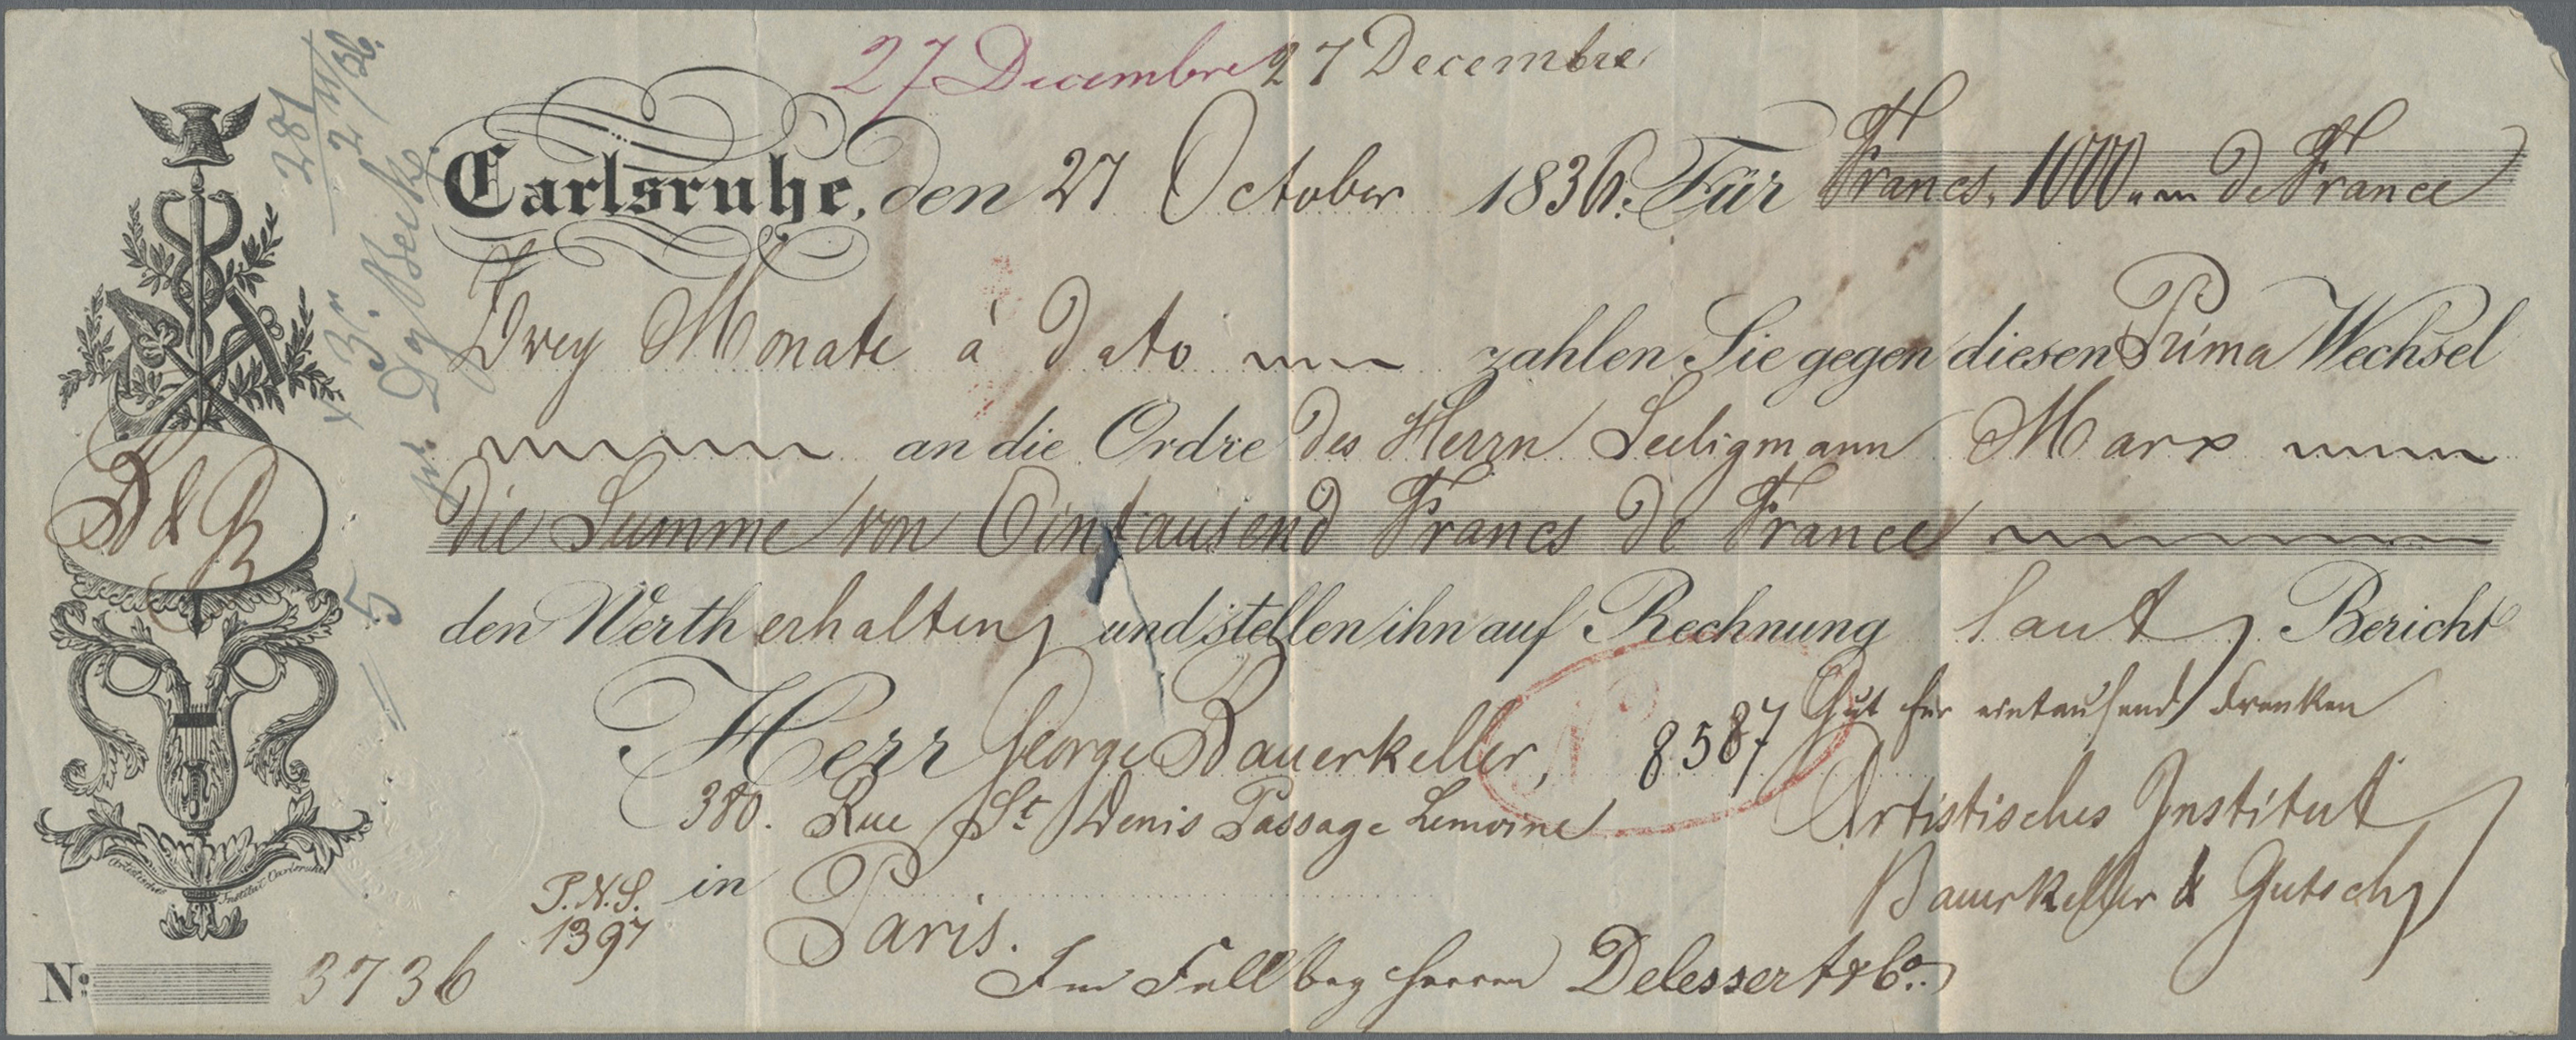 27 Decembre 27 Decembre
Carlsruhe, den 27 October 1836. Für Francs. 1000 de France
Zwey Monate à dato zahlen Sie gegen diesen Prima Wechsel
an die Ordre des Herrn Seeligmann Marx
die Summe von Eintausend Francs de France
den Werth erhalten, und stellen ihn auf Rechnung laut Bericht
Gut für eintausend Franken
Herr George Bauerkeller, 8587
380. Rue St Denis Passage Lemoine
Artistisches Institut
in Paris.
Bauerkeller & Gutsch
P.N.S.
1397
Im Fall bey Herren Delessert & Co.
No. 3736
B & G
Artistisches Institut Carlsruhe
281
5